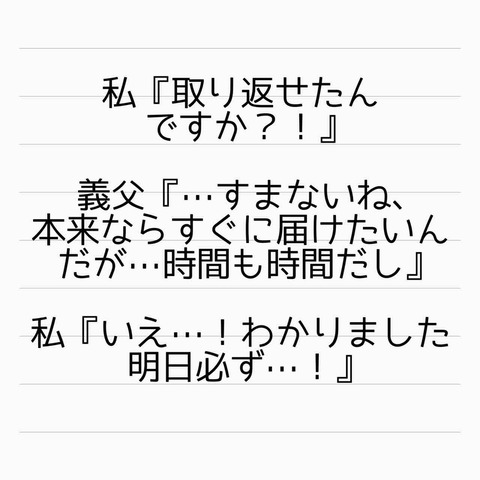 私『取り返せたん
ですか？！』
義父『…すまないね、
本来ならすぐに届けたいん
だが…時間も時間だし』
私『いえ…！わかりました
明日必ず…！』